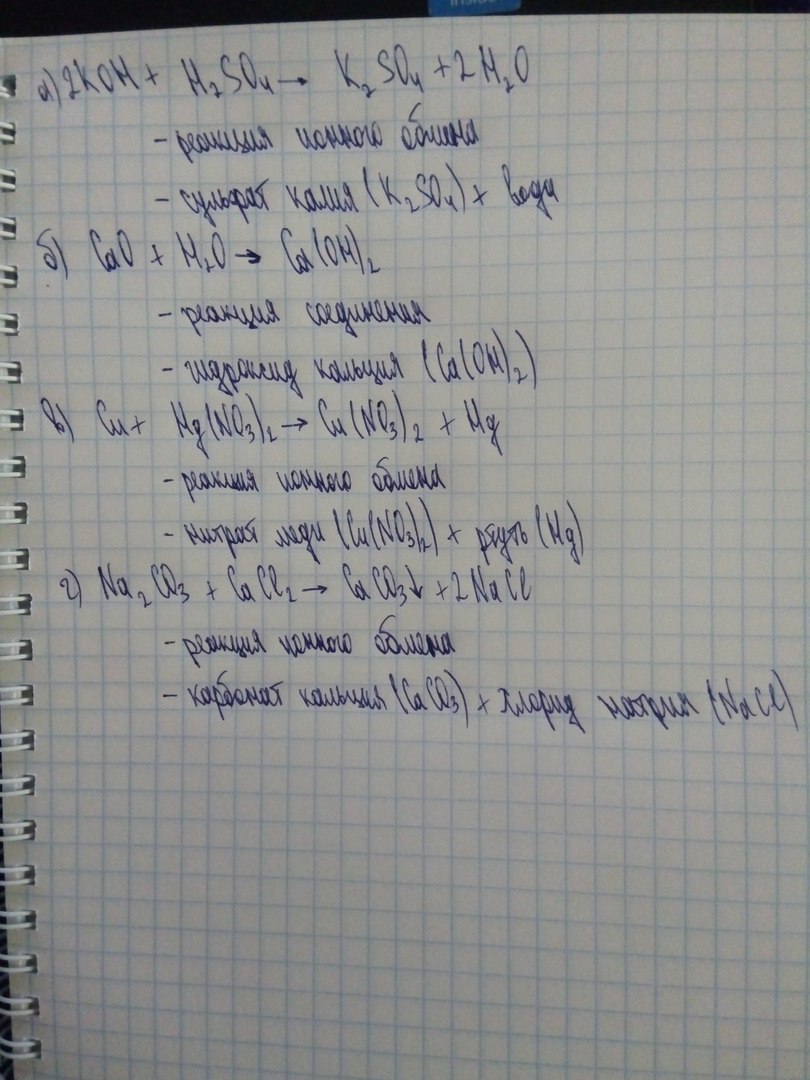 inside
а) 2KOH + H₂SO₄ → K₂SO₄ + 2H₂O
- реакция ионного обмена
- сульфат калия (K₂SO₄) + вода
б) CaO + H₂O → Ca(OH)₂
- реакция соединения
- гидроксид кальция (Ca(OH)₂)
в) Cu + Hg(NO₃)₂ → Cu(NO₃)₂ + Hg
- реакция ионного обмена
- нитрат меди (Cu(NO₃)₂) + ртуть (Hg)
г) Na₂CO₃ + CaCl₂ → CaCO₃↓ + 2NaCl
- реакция ионного обмена
- карбонат кальция (CaCO₃) + хлорид натрия (NaCl)